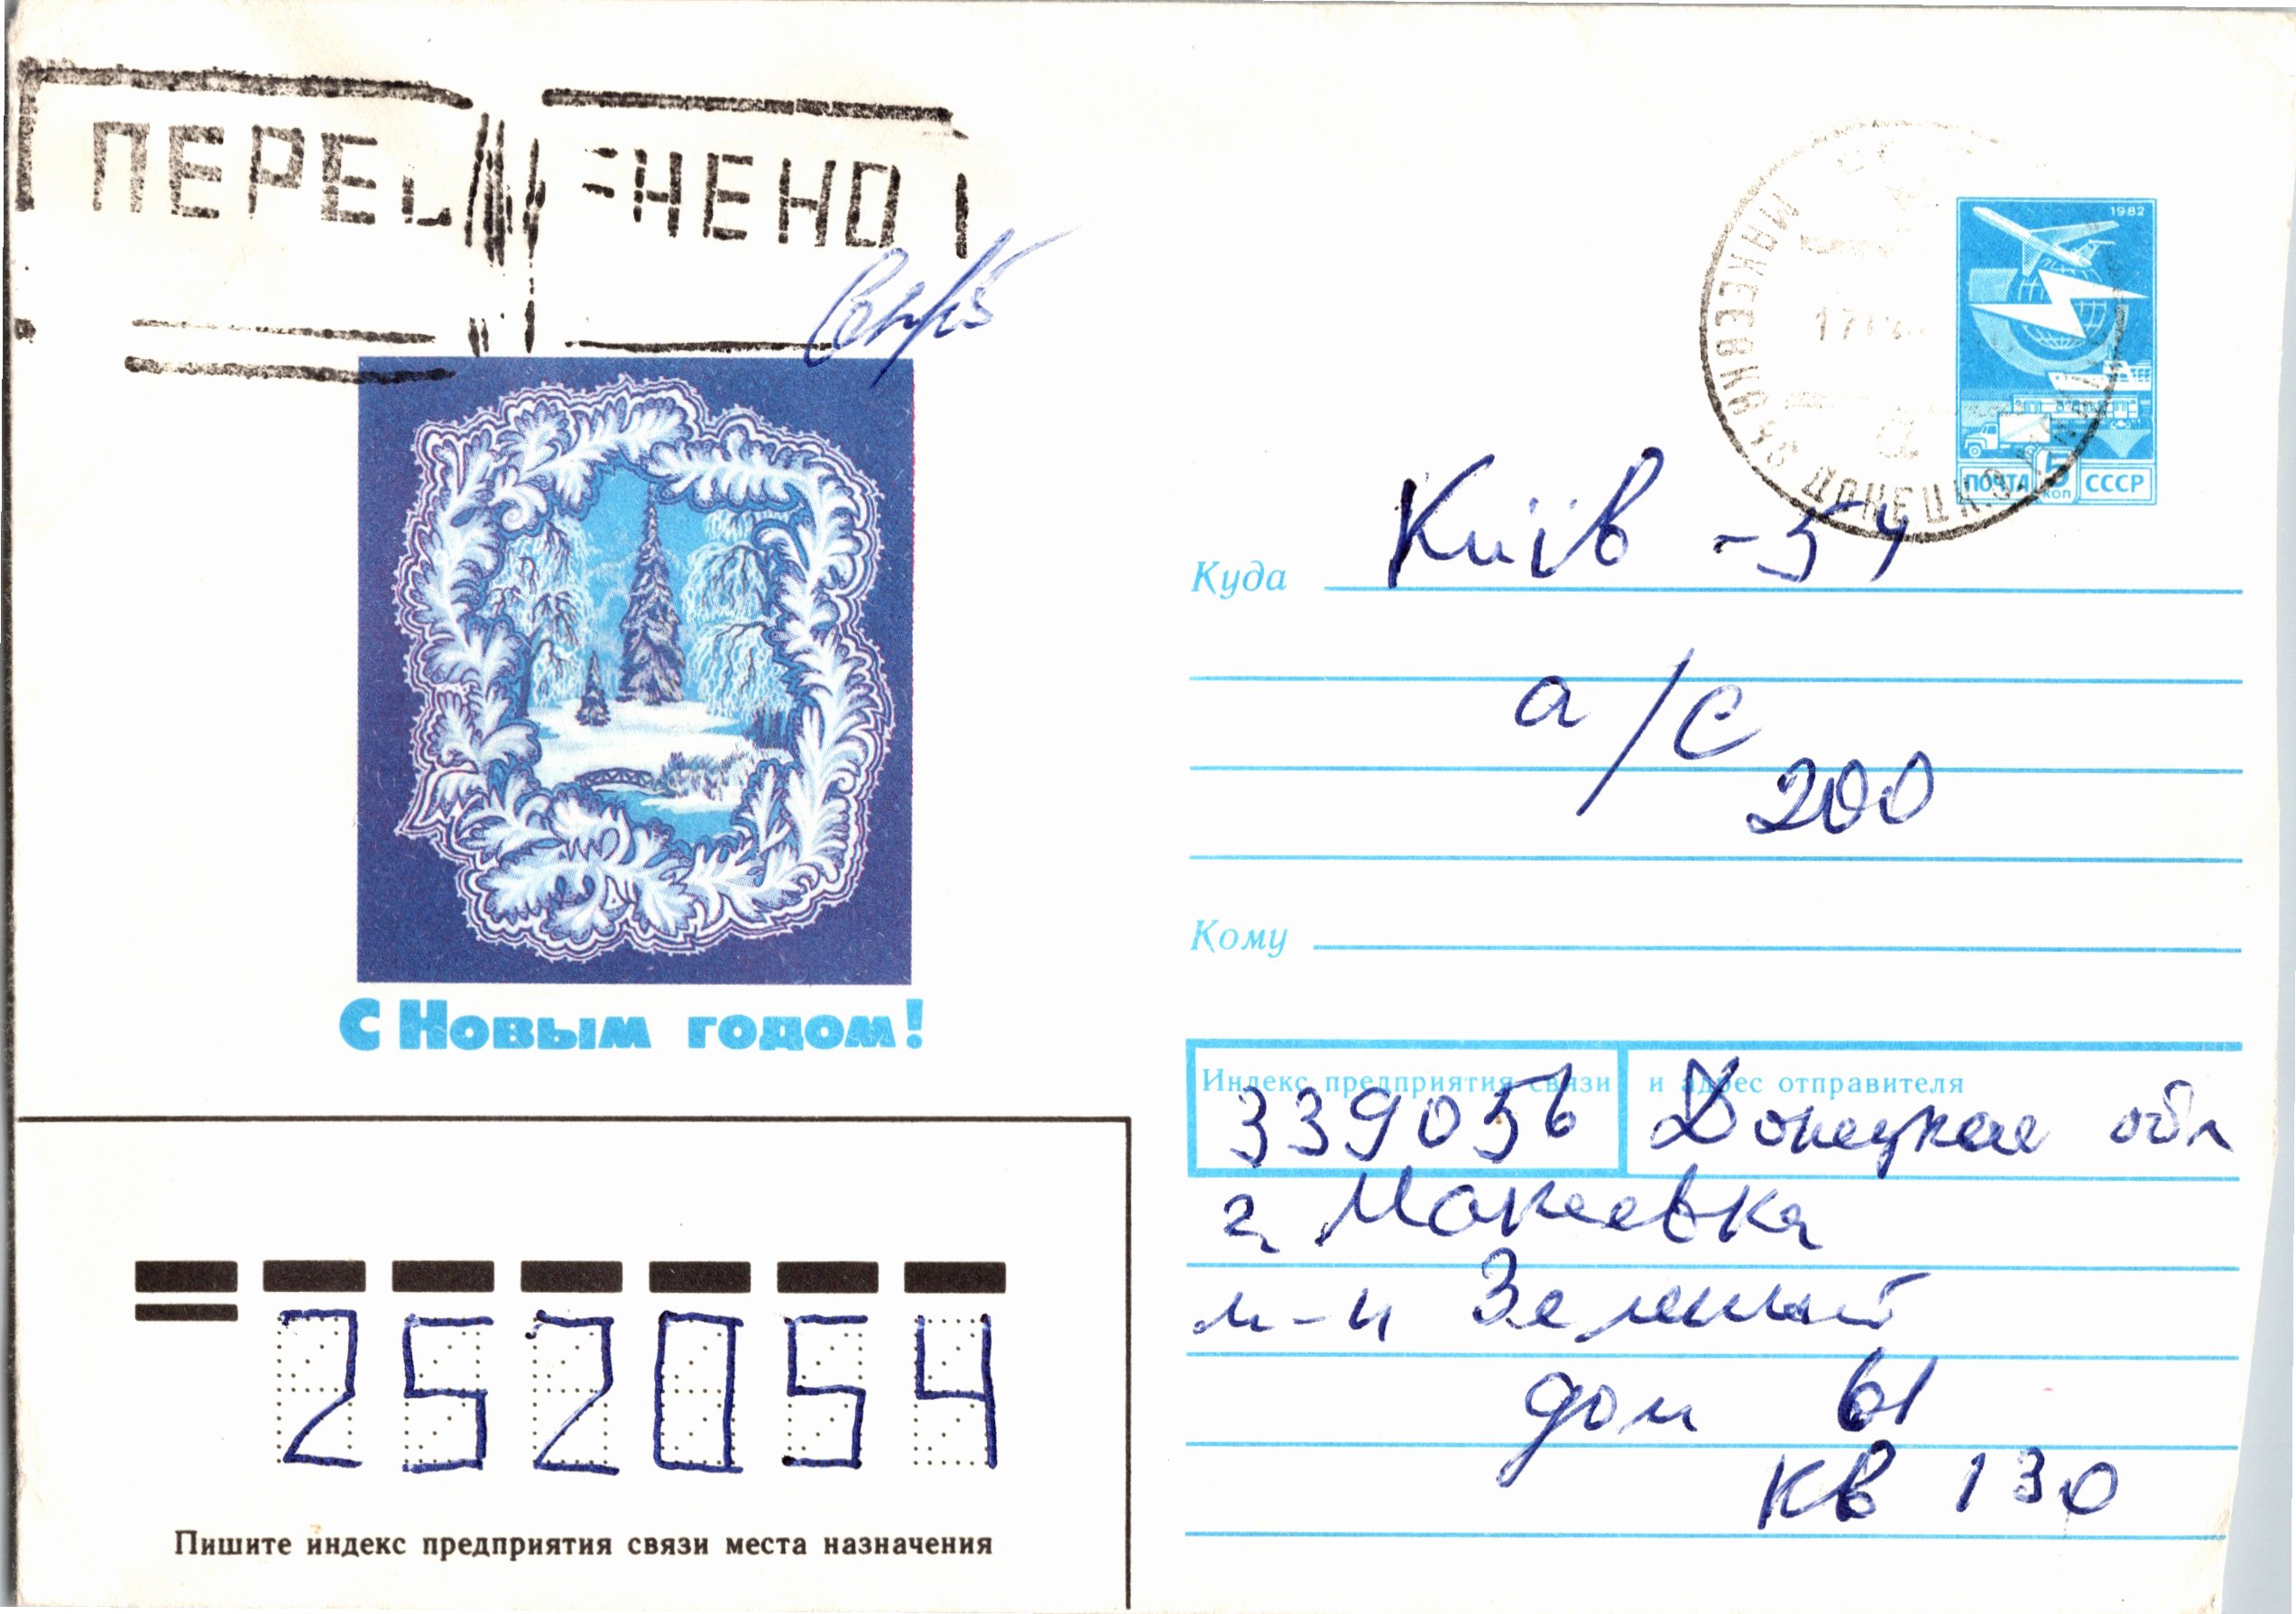 1982
ПОЧТА 5 КОП СССР
МАКЕЕВКА ДОНЕЦК
С Новым годом!
Куда Київ -54
а/с
200
Кому
Индекс предприятия связи и адрес отправителя
339056 Донецкая обл
г Макеевка
м-н Зеленый
дом 61
кв 130
252054
Пишите индекс предприятия связи места назначения